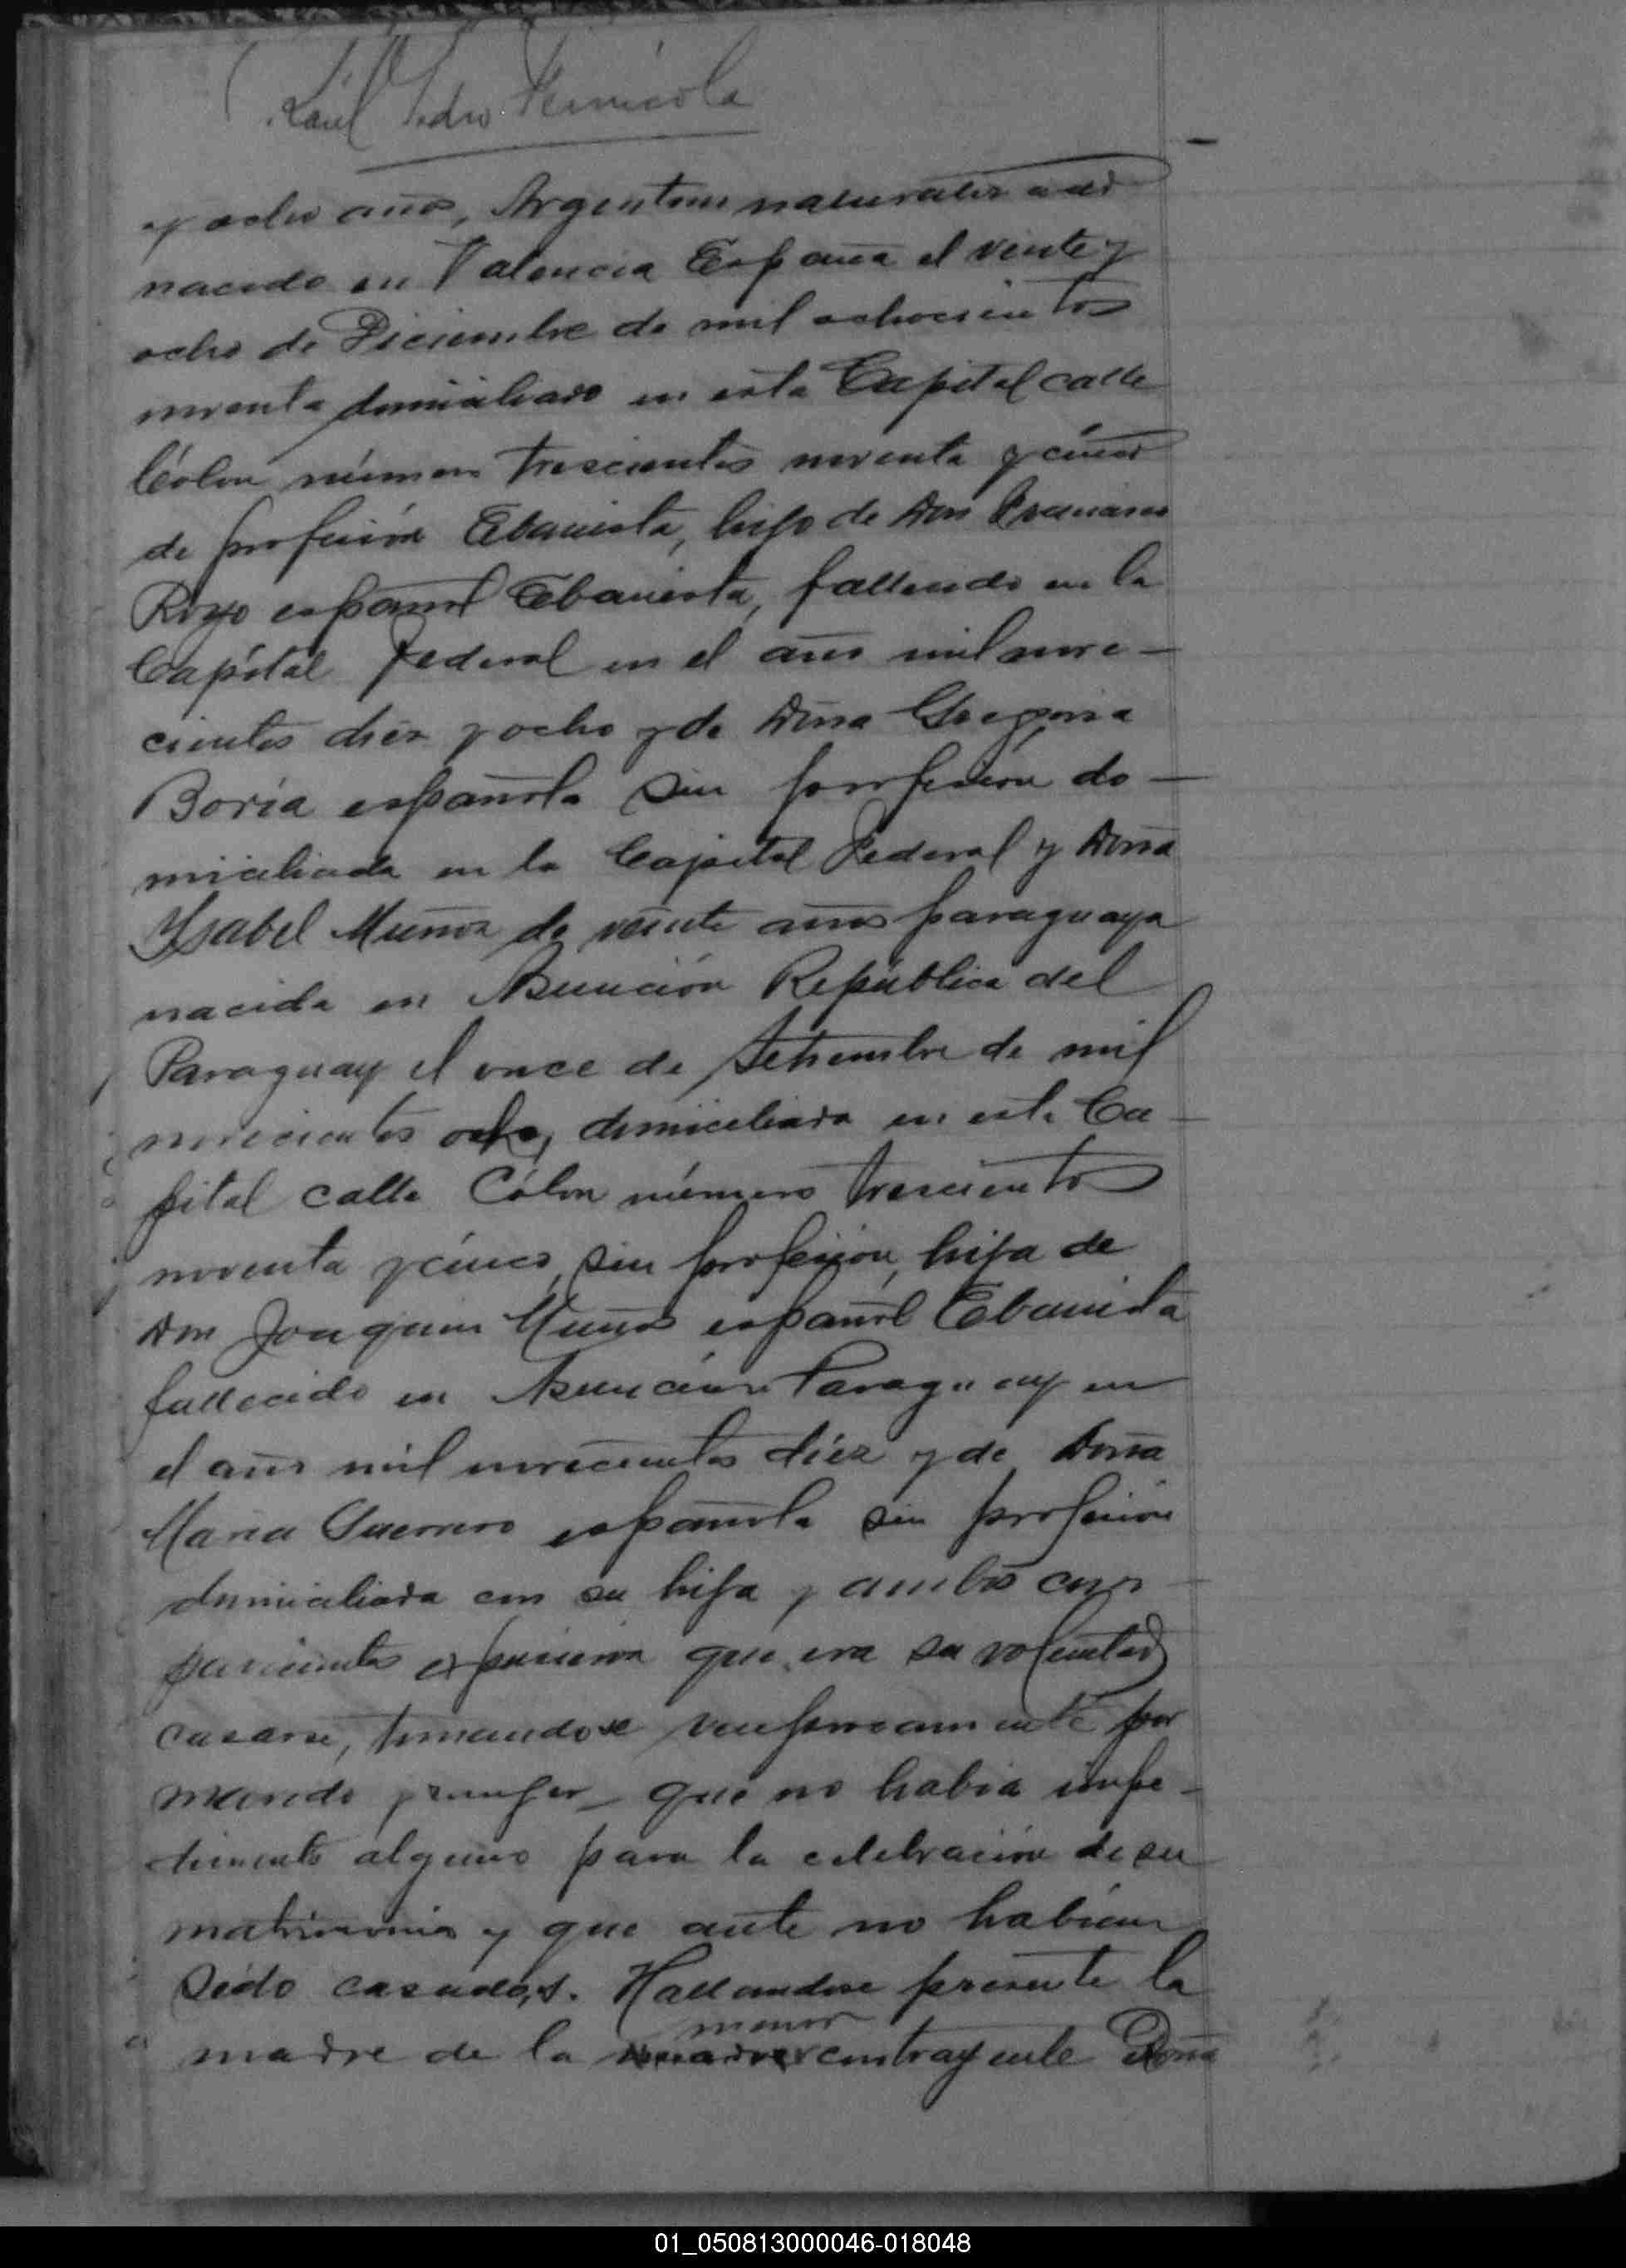 Raúl Pedro
y ocho años, Argentino naturalizado
nacido en Valencia España el veinte y
ocho de Diciembre de mil ochocientos
noventa domiciliado en esta Capital calle
Cólon número trescientos noventa y cinco
de profesión Ebanista, hijo de Don Francisco
Royo español Ebanista, fallecido en la
Capital Federal en el año mil nove-
cientos diez y ocho y de Doña Gregoria
Boria española sin profesión do-
miciliada en la Capital Federal y Doña
Ysabel Muñoz de veinte años paraguaya
nacida en Asunción República del
Paraguay el once de Setiembre de mil
novecientos ocho, domiciliada en esta Ca-
pital calle Cólon número trescientos
noventa y cinco, sin profesión, hija de
Don Joaquin Muñoz español Ebanista
fallecido en Asunción Paraguay en
el año mil novecientos diez y de Doña
Maria Guerrero española sin profesión
domiciliada con su hija y ambos com-
parecientes expusieron que era su voluntad
casarse, tomandose reciprocamente por
marido y mujer que no habia impe-
dimento alguno para la celebración de su
matrimonio y que ante no habian
sido casados. Hallandose presente la
menor
madre de la contrayente Doña
01_050813000046-018048